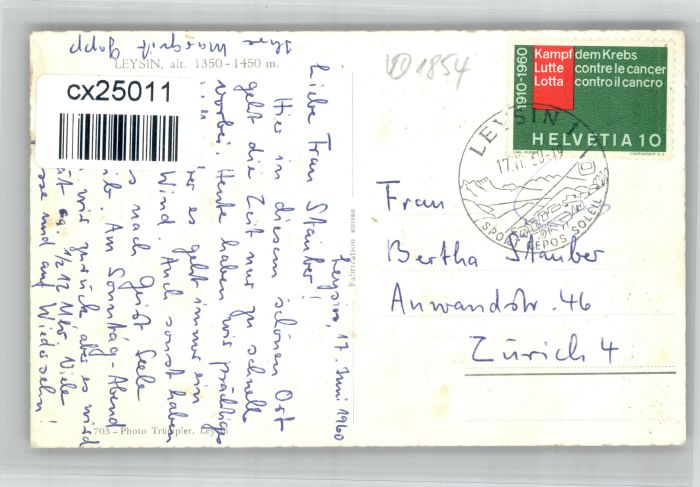 LEYSIN, alt. 1350-1450 m.
cx25011
VD 1854
1910-1960
Kampf dem Krebs
Lutte contre le cancer
Lotta contro il cancro
HELVETIA 10
LEYSIN 1
17.VI.60-19
SPORT REPOS SOLEIL
Leysin, 17. Juni 1960
Liebe Frau Stauber!
Hier in diesem schönen Ort
geht die Zeit nur zu schnell
vorbei. Heute haben wir prächtiges
es geht immer ein
Wind. Auch sonst haben
nach Geist Seele
Am Sonntag-Abend
wir zurück aber es wird
1/2 12 Uhr. Viele
und auf Wiedersehn!
Ihre Margrit Gopp
Fabrication suisse
Frau
Bertha Stauber
Anwandstr. 46
Zürich 4
703 - Photo Trümpler, Leysin